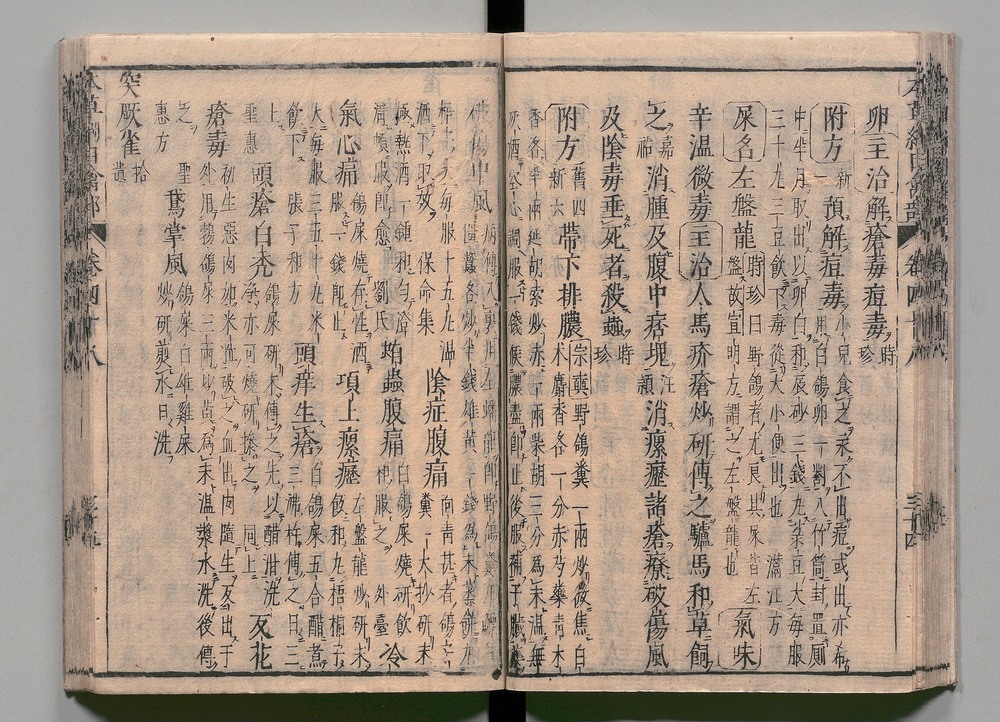 卵主治解瘡毒痘毒時珍
附方新一預解痘毒小兒食之永不出痘或出亦希用白鴿卵一對入竹筒封置厠
中半月取出以卵白和辰砂三錢丸綠豆大每服
三十丸三豆飲下毒從大小便出也
屎名左盤龍時珍曰野鴿者尤良其屎皆左盤故宣明方謂之左盤龍也氣味
辛溫微毒主治人馬疥瘡炒研傅之驢馬和草飼
之嘉祐消腫及腹中痞塊汪頴消瘰癧諸瘡療破傷風
及陰毒垂死者殺蟲時珍
附方舊四新六帶下排膿宗奭野鴿糞一兩炒微焦白朮麝香各一分赤芍藥青木
香各半兩延胡索炒赤一兩柴胡三分爲末溫無
灰酒空心調服一錢候膿盡即止後服補子臟藥
破傷中風
每服十五丸溫
酒下取效保命集陰症腹痛鴿糞一大抄研末
極熱酒一鍾和勻澄
清頓服即愈劉氏蚘蟲腹痛白鴿屎燒研飲和服之外臺冷
氣心痛鴿屎燒存性酒服一錢即止項上瘰癧左盤龍炒研末飯和丸梧桐子
大每服三五十丸米
飲下張子和方頭痒生瘡白鴿屎五合醋煮三沸杵傅之日三
上聖惠頭瘡白禿鴿屎研末傅之先以醋泔洗淨亦可燒研摻之同上反花
瘡毒初生惡肉如米粒破之血出肉隨生反出于外用鵓鴿屎三兩炒黃爲末溫漿水洗後傅
之聖惠方鵞掌風鴿屎白雄雞屎炒研煎水日洗
突厥雀拾遺
卷四十八